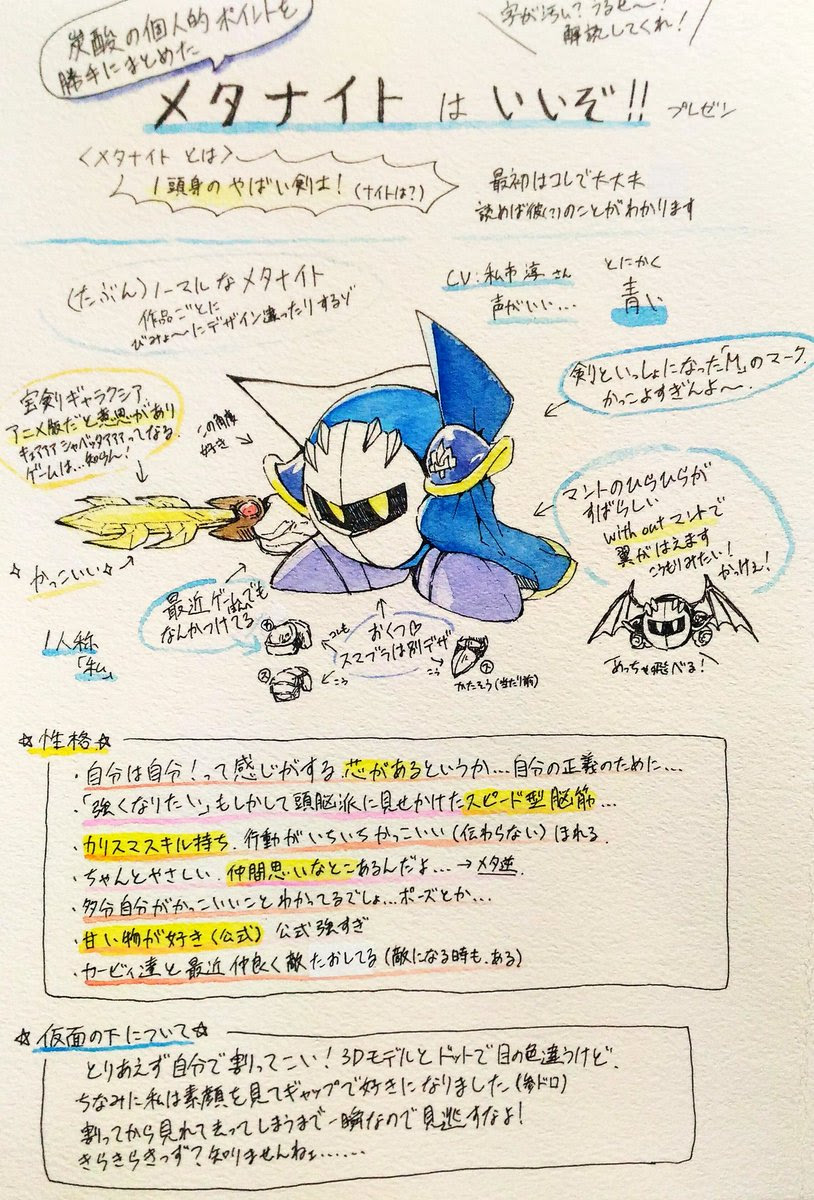 炭酸の個人的ポイントを
勝手にまとめた
字が汚い?うるせ〜!
解読してくれ!
メタナイト は いいぞ!! プレゼン
<メタナイト とは>
1頭身の やばい剣士! (ナイトは?)
最初はコレで大丈夫
読めば彼(?)のことがわかります
(たぶん)ノーマルなメタナイト
作品ごとに
びみょ〜にデザイン違ったりするゾ
CV:私市 淳 さん
声がいい…
とにかく
青い
剣といっしょになった「M」のマーク
かっこよすぎんよ〜
宝剣ギャラクシア
アニメ版だと意思があり
キュアアア シャベッタアアアってなる
ゲームは…知らん!
この角度
好き
マントのひらひらが
すばらしい
with out マントで
翼がはえます
こうもりみたい!
かっけぇ!
かっこいい
最近ゲームでも
なんかつけてる
おくつ♡
スマブラは別デザ
コレも
こう
こう
かたそう(当たり前)
1人称
「私」
めっちゃ飛べる!
☆性格☆
・自分は自分!って感じがする 芯があるというか…自分の正義のために…
・「強くなりたい」もしかして頭脳派に見せかけたスピード型脳筋…
・カリスマスキル持ち. 行動がいちいちかっこいい(伝わらない)ほれる
・ちゃんとやさしい. 仲間思いなとこあるんだよ…→メタ逆
・多分自分がかっこいいことわかってるでしょ…ポーズとか…
・甘い物が好き(公式) 公式強すぎ
・カービィ達と最近仲良く敵たおしてる(敵になる時も.ある)
☆仮面の下について☆
とりあえず自分で割ってこい!3Dモデルとドットで目の色違うけど.
ちなみに私は素顔を見てギャップで好きになりました(参ドロ)
割ってから見れて去ってしまうまで一瞬なので見逃すなよ!
きらきらきっず?知りませんねェ……